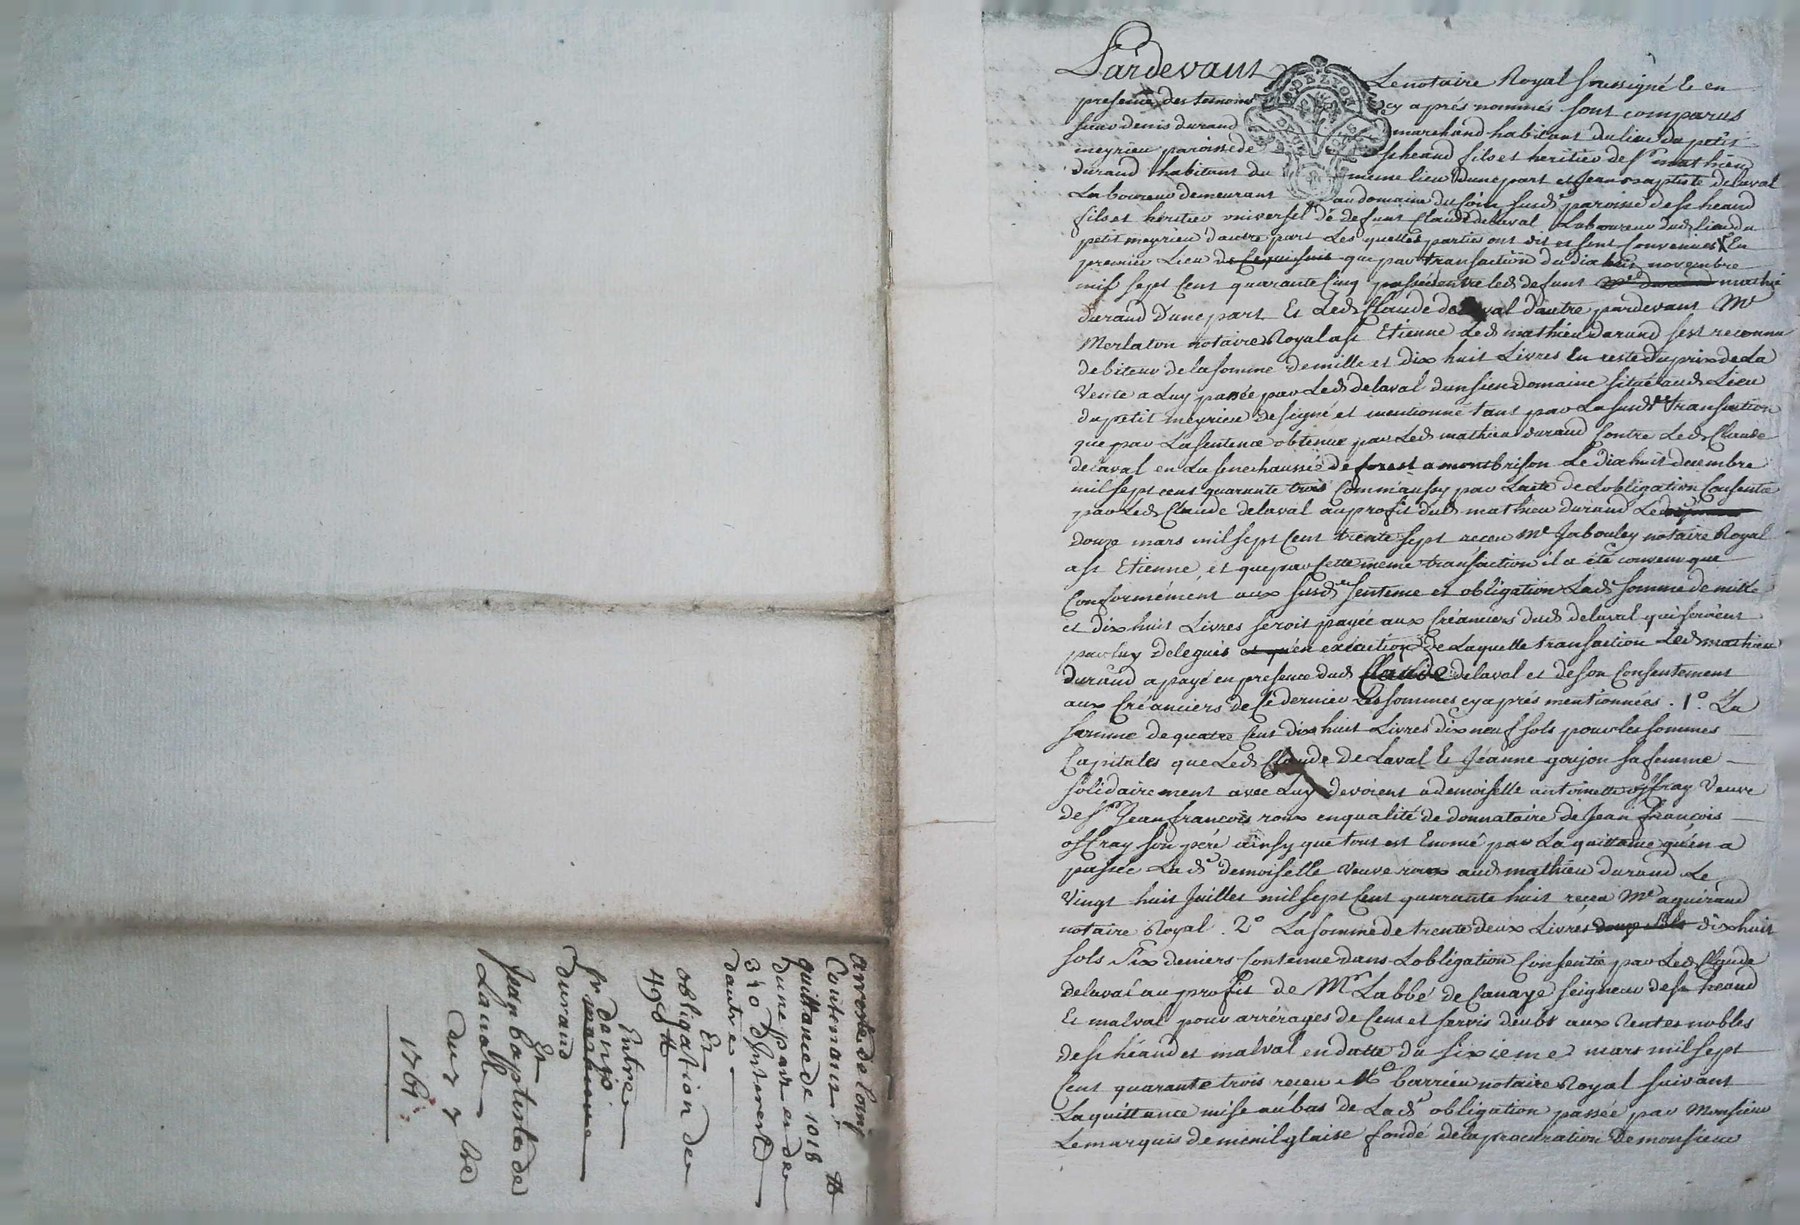 arresté de Comp
Contenant
quittance de 1018 ₶
dune part et de
340 d'Interest
dautre
Et
obligation de
498 ₶
Entre
Sr denis
durand
Et
Jean baptiste de
Laualle
du 7 bre
1761
Pardevant Le notaire Royal soussigné Et en
presence des temoins cy aprés nommés sont comparus
sieur denis durand marchand habitant du lieu du petit
meyrieu paroisse de st heand fils et heritier de Sr mathieu
durand habitant du meme lieu dune part et Jean Baptiste delaval
Laboureur demeurant au domaine du Coin susd. paroisse de st heand
fils et heritier universel de defunt Claude delaval Laboureur dud. lieu du
petit meyrieu d'autre part Les quelles parties ont dit et sont convenues En
premier Lieu de ce qui suit que par transaction du dix huit novembre
mil sept Cent quarante Cinq passée entre led. defunt mathieu
durand D'une part Et Led. Claude delaval d'autre pardevant Me
Merlaton notaire Royal a st Etienne Led. mathieu durand s'est reconnu
debiteur de la somme de mille et dix huit Livres En reste du prix de La
Vente a Luy passée par Led. delaval d'un sien domaine situé aud. Lieu
du petit meyrieu designé et mentionné tant par La susd. transaction
que par La sentence obtenue par Led. mathieu durand Contre Led. Claude
delaval en La senechaussée de forest a montbrison Le dix huit decembre
mil sept cent quarante trois Comm'aussy par L'acte de L'obligation Consentie
par Led. Claude delaval au profit dud. mathieu durand Le
douze mars mil sept Cent trente sept receu Me Jabouley notaire Royal
a st Etienne, et que par cette meme transaction il a été convenu que
Conformément aux susd. sentence et obligation Lad. somme de mille
et dix huit Livres seroit payée aux Créanciers dud. delaval qui seroient
par luy delegués et qu'en exécution de Laquelle transaction Led. mathieu
durand a payé en presence dud. Claude delaval et de son Consentement
aux Créanciers de Ce dernier Les sommes cy aprés mentionnées. 1°. La
somme de quatre Cent dix huit Livres dix neuf sols pour les sommes
Capitales que Led. Claude de Laval Et Jeanne goujon sa femme
solidairement avec Luy devoient a demoiselle antoinette offray Veuve
de Sr Jean françois roux en qualité de donnataire de Jean françois
offray son pere ainsy que tout est Enoncé par La quittance qu'en a
passée Lad. demoiselle Veuve roux aud. mathieu durand Le
Vingt huit Juillet mil sept Cent quarante huit receu Me aguiraud
notaire Royal. 2° La somme de trente deux Livres douze sols dix huit
sols six deniers Contenue dans L'obligation Consentie par Led. Claude
delaval au profit de Mr L'abbé de Canaye seigneur de st heand
Et malval pour arrérages de Cens et servis deubt aux Rentes nobles
de st héand et malval en datte du sixieme mars mil sept
Cent quarante trois receu Me barrieu notaire Royal suivant
La quittance mise au bas de Lad. obligation passée par Monsieur
Le marquis de menilglaise fondé de la procuration De monsieur